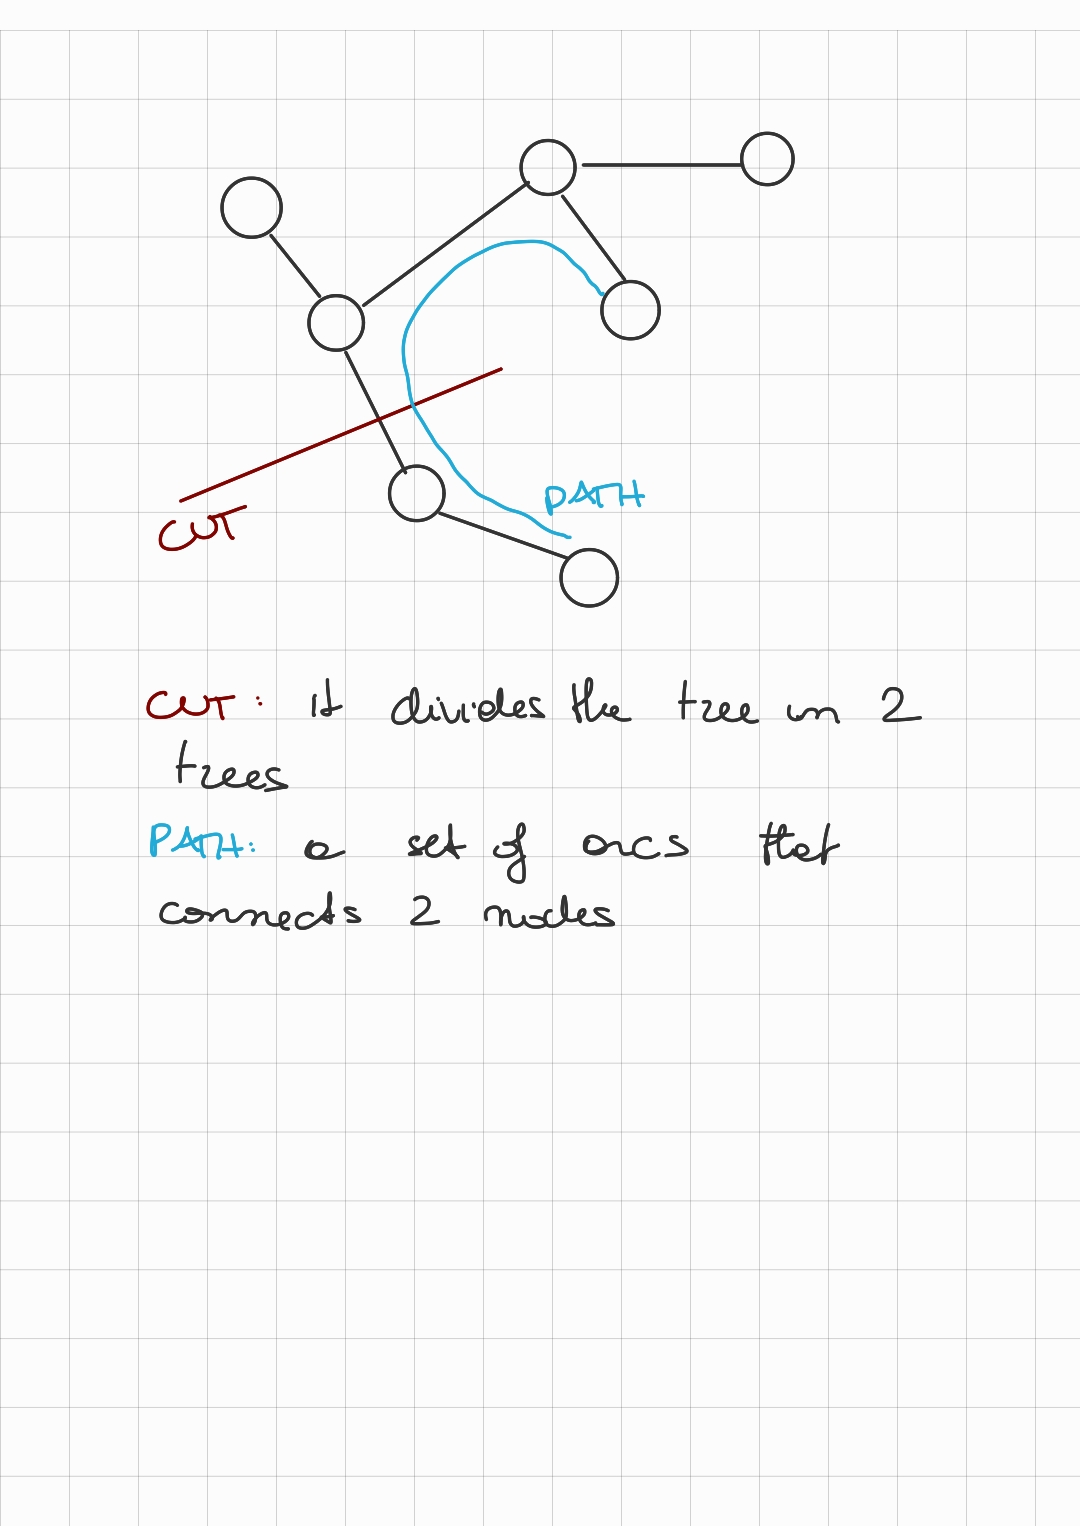 PATH
CUT
CUT: it divides the tree in 2
trees
PATH: a set of arcs that
connects 2 nodes